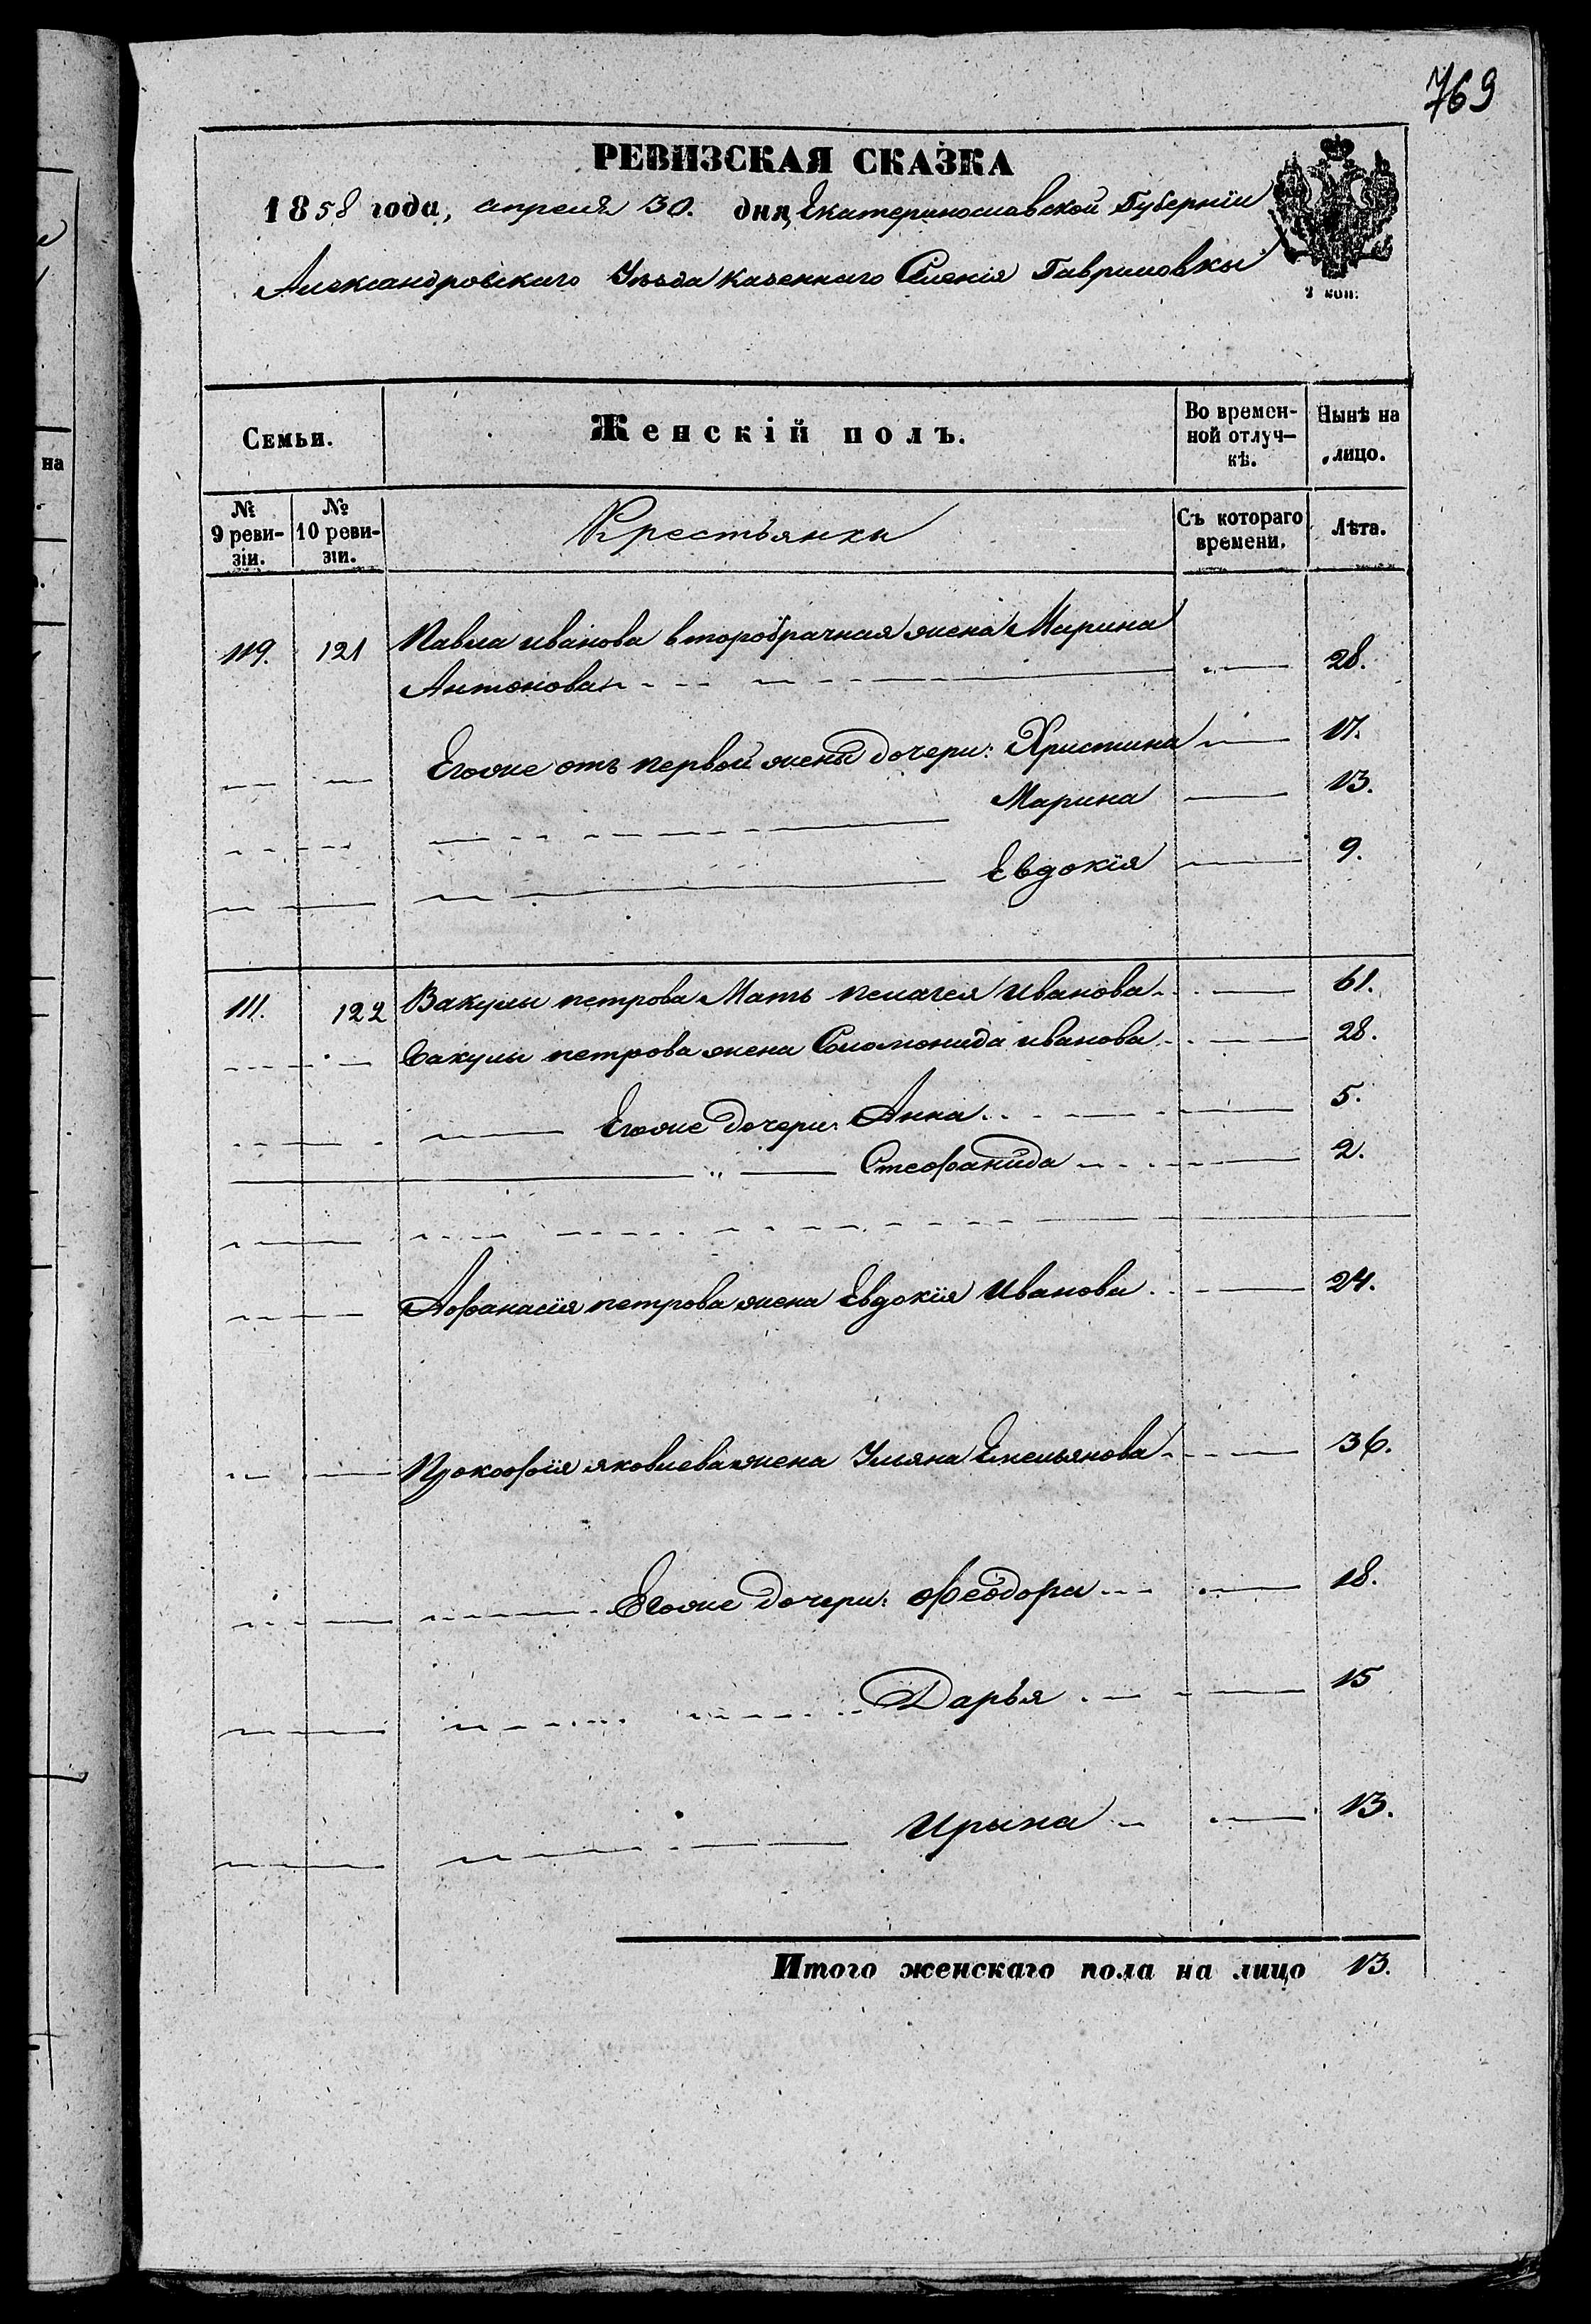 769
РЕВИЗСКАЯ СКАЗКА
1858 года, апреля 30. дня, Екатеринославской Губернїи
Александровскаго Уѣзда казеннаго Селенія Гавриловки
2 коп:
Семьи.
Женскій полъ.
Во времен-
ной отлуч-
кѣ.
Нынѣ на
лицо.
№
9 реви-
зіи.
№
10 реви-
зіи.
Крестьянки
Съ котораго
времени.
Лѣта.
119. 121 Павла иванова второбрачная жена Марина
Антонова 28.
Егоже отъ первой жены дочери: Христина 17.
Марина 13.
Евдокїя 9.
111. 122 Вакулы петрова Мать пелагея Иванова 61.
Вакулы петрова жена Соломонида иванова 28.
Егоже дочери: Анна 5.
Стефанида 2.
Афанасїя петрова жена Евдокїя Иванова 24.
Прокофїя яковлева жена Ульяна Емельянова 36.
Егоже дочери: Феодора 18.
Дарья 15
Ирына 13.
Итого женскаго пола на лицо 13.
на